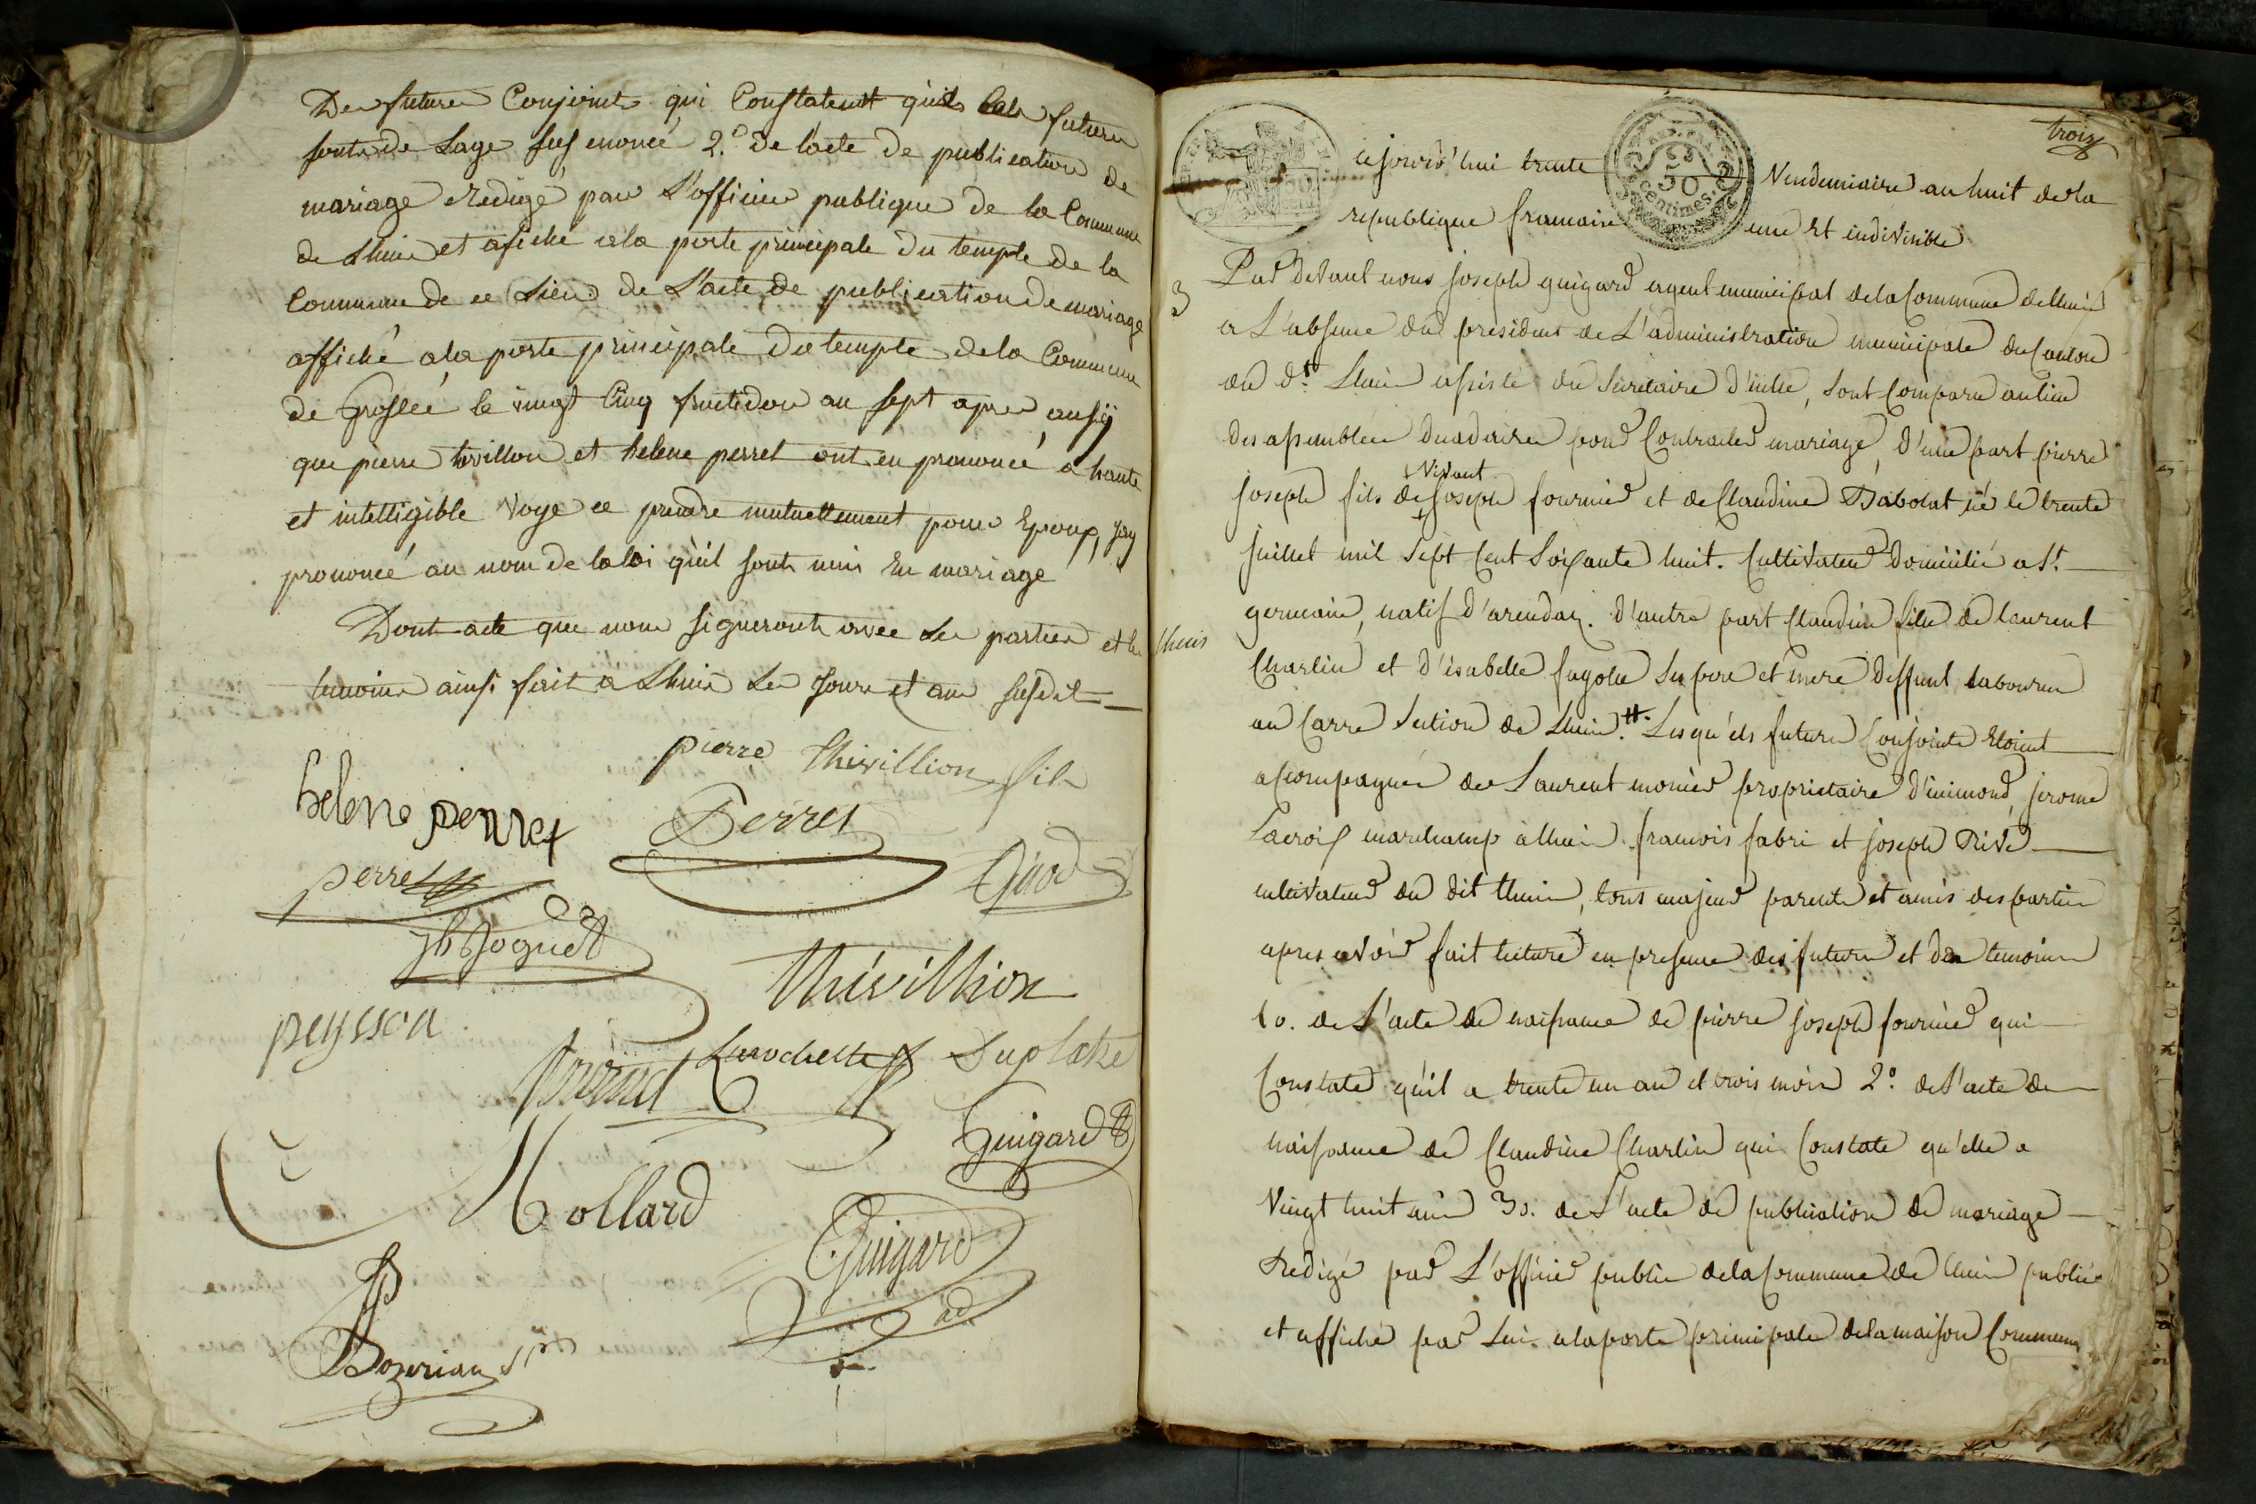 Des futures Conjoints qui Constatent quils les futures
sont de Lage sus enoncé 2.° de lacte de publication de
mariage redigé par L'officier publique de la Commune
de Lhuis et afiché a la porte principale du temple de la
Commune de ce Lieu de L'acte de publication de mariage
affiché a la porte principale du temple de la Commune
de Groslée le vingt Cinq fructidor an sept apres aussy
que pierre et helene perret ont en prononcé a haute
et intelligible voye ce prendre mutuellement pour Epoux, jay
prononcé au nom de la loi qu'il sont unis en mariage
Dont acte que nous signeront avec Les parties et les
temoins ainsi fait a Lhuis Les jours et an susdit
pierre thivillion fils
helene perret
Perret
perret
Guod
jh Joguet
thivillion
peysson
Larochette Duplatre
Guigard
Mollard
Guigard
ad
Bozerian
trois
cejourd'hui trente Vendemiaire an huit de la
50 centimes
republique francaise une et indivisible
3
Par devant nous joseph guigard agent municipal de la Commune de lhuis
a L'absence du president de L'administration municipale du Canton
du dt. Lhuis assisté du Secretaire d'icelle, sont Comparu au lieu
des assemblées decadaires pour Contracter mariage, d'une part pierre
Vivant
joseph fils de joseph fournier et de Claudine Babolat né le trente
juillet mil sept Cent Soixante huit. Cultivateur Domicilié a St.
germain, natif d'arenday. d'autre part Claudine fille de laurent
lhuis
Charlin et d'isabelle fugolle Ses pere et mere deffunt laboureur
au Carre Section de Lhuis. Lesquels futurs Conjoints Etoient
acompagnés de Laurent monier proprietaire d'inimond, jerome
Lacroix marchamp a lhuis francois fabri et joseph Rivé
cultivateurs du dit lhuis, tous majeurs parents et amis des parties
apres avoir fait lecture en presence des futurs et des temoins
1o. de L'acte de naissance de pierre joseph fournier qui
Constate quil a trente un an et trois mois 2°. de L'acte de
naissance de Claudine Charlin qui Constate qu'elle a
Vingt huit ans 3o. de L'acte de publication de mariage
Redigé par L'officier public de la Commune de lhuis publié
et affiché par Lui a la porte principale de la maison Commune